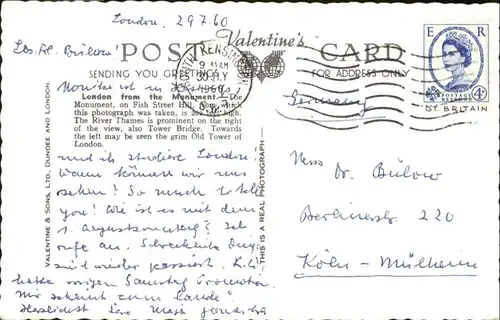 London, 29.7.60
Lbs. Hr. Bülow!
POST CARD
Valentine's
SENDING YOU GREETINGS
FOR ADDRESS ONLY
SOUTH KENSINGTON
9 15 AM
30 JLY
1960
S.W.
E R
POSTAGE
4D
GT. BRITAIN
London from the Monument.—The
Monument, on Fish Street Hill, from which
this photograph was taken, is 202 ft. high.
The River Thames is prominent on the right
of the view, also Tower Bridge. Towards
the left may be seen the grim Old Tower of
London.
VALENTINE & SONS, LTD., DUNDEE AND LONDON.
THIS IS A REAL PHOTOGRAPH
Germany
und ich studiere London.
Wann können wir uns
sehen? So much to tell
you! Wie ist es mit dem
1. Augustsonntag? Ich
rufe an. Schreckliche Dinge
sind wieder passiert.
hatte vorigen Samstag Promotion
"Wir sehen zum Lande"
Herzlichst Ihre
Herr Dr. Bülow
Berlinerstr. 220
Köln-Mülheim